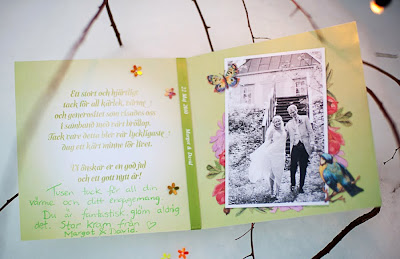 Ett stort och hjärtligt
tack för all kärlek, värme
och generositet som visades oss
i samband med vårt bröllop.
Tack vare detta blev vår lyckligaste
dag ett kärt minne för livet.
Vi önskar er en god jul
och ett gott nytt år!
Tusen tack för all din
värme och ditt engagemang.
Du är fantastisk, glöm aldrig
det. Stor kram från
Margot & David
Margot & David